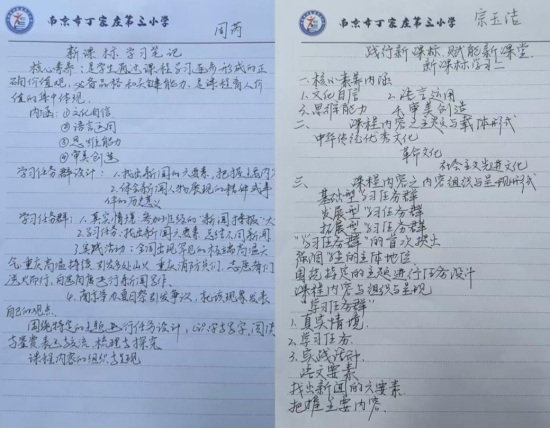 南京市丁家庄第二小学
周芮
新课标学习笔记
核心素养：是学生通过课程学习逐步形成的正
确价值观，必备品格和关键能力，是课程育人价
值的集中体现。
内涵：①文化自信
②语言运用
③思维能力
④审美创造
学习任务群设计：1.找出新闻的六要素，把握主要内容
2.体会新闻人物展现的精神或事
件的历史意义
学习任务群：1.真实情境：参加班级的“新闻播报”
2.学习任务：找出新闻六要素，总结不同新闻
3.实践活动：
4.南京
自己的观点。
围绕特定的主题进行任务设计，识字与写字，阅读
与鉴赏，表达与交流，梳理与探究
课程内容的组织与呈现
南京市丁家庄第二小学
宗玉洁
践行新课标，赋能新课堂
新课标学习
一、核心素养内涵
1.文化自信 2.语言运用
3.思维能力 4.审美创造
二、课程内容之主题与载体形式
中华传统优秀文化
革命文化
社会主义先进文化
三、课程内容之内容组织与呈现形式
基础型学习任务群
发展型学习任务群
拓展型学习任务群
“学习任务群”的首次提出
强调学生的主体地位
围绕特定的主题进行任务设计
课程内容与组织与呈现
“学习任务群”
1.真实情境
2.学习任务
3.实践活动
语文要素
找出新闻的六要素
把握主要内容。